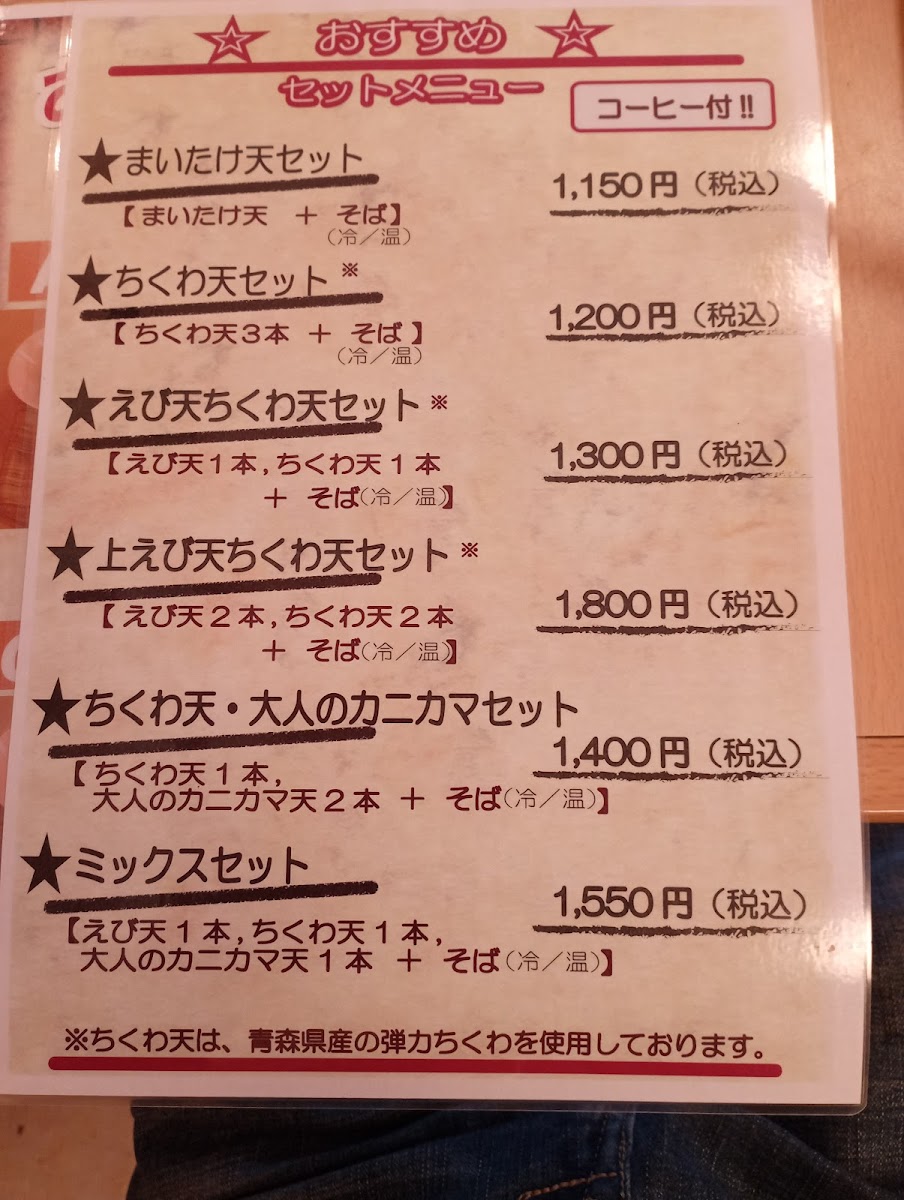 ☆ おすすめ ☆
セットメニュー
コーヒー付!!
★まいたけ天セット
1,150円（税込）
【まいたけ天 ＋ そば】
（冷／温）
★ちくわ天セット※
1,200円（税込）
【ちくわ天３本 ＋ そば】
（冷／温）
★えび天ちくわ天セット※
1,300円（税込）
【えび天１本,ちくわ天１本
＋ そば（冷／温）】
★上えび天ちくわ天セット※
1,800円（税込）
【えび天２本,ちくわ天２本
＋ そば（冷／温）】
★ちくわ天・大人のカニカマセット
1,400円（税込）
【ちくわ天１本,
大人のカニカマ天２本 ＋ そば（冷／温）】
★ミックスセット
1,550円（税込）
【えび天１本,ちくわ天１本,
大人のカニカマ天１本 ＋ そば（冷／温）】
※ちくわ天は、青森県産の弾力ちくわを使用しております。